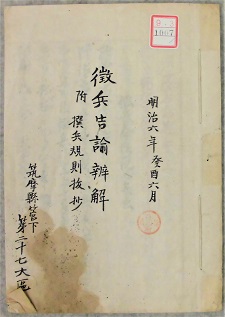 明治六年癸酉六月
徴兵告諭辨解
附 撰兵規則抜抄
筑摩縣管下
第二十七大区
1007